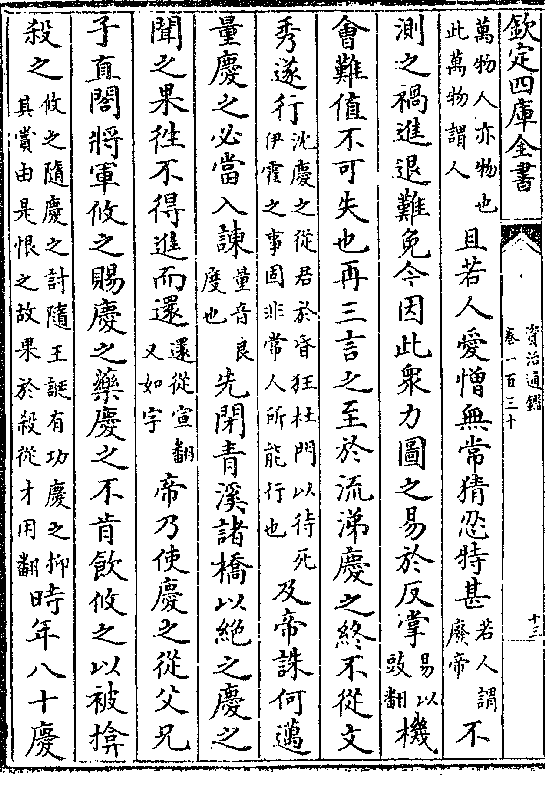 欽定四庫全書
資治通鑑
卷一百三十
十三
萬物人亦物也此萬物謂人且若人愛憎無常猜忍特甚若人謂廢帝不
測之禍進退難免今因此衆力圖之易於反掌易以豉翻機
會難值不可失也再三言之至於流涕慶之終不從文
秀遂行沈慶之從君於昏狂杜門以待死伊霍之事固非常人所能行也及帝誅何邁
量慶之必當入諫量音良度也先閉青溪諸橋以絶之慶之
聞之果徃不得進而還還從宣翻又如字帝乃使慶之從父兄
子直閤將軍攸之賜慶之藥慶之不肯飲攸之以被揜
殺之攸之隨慶之討隨王誕有功慶之抑其賞由是恨之故果於殺從才用翻時年八十慶